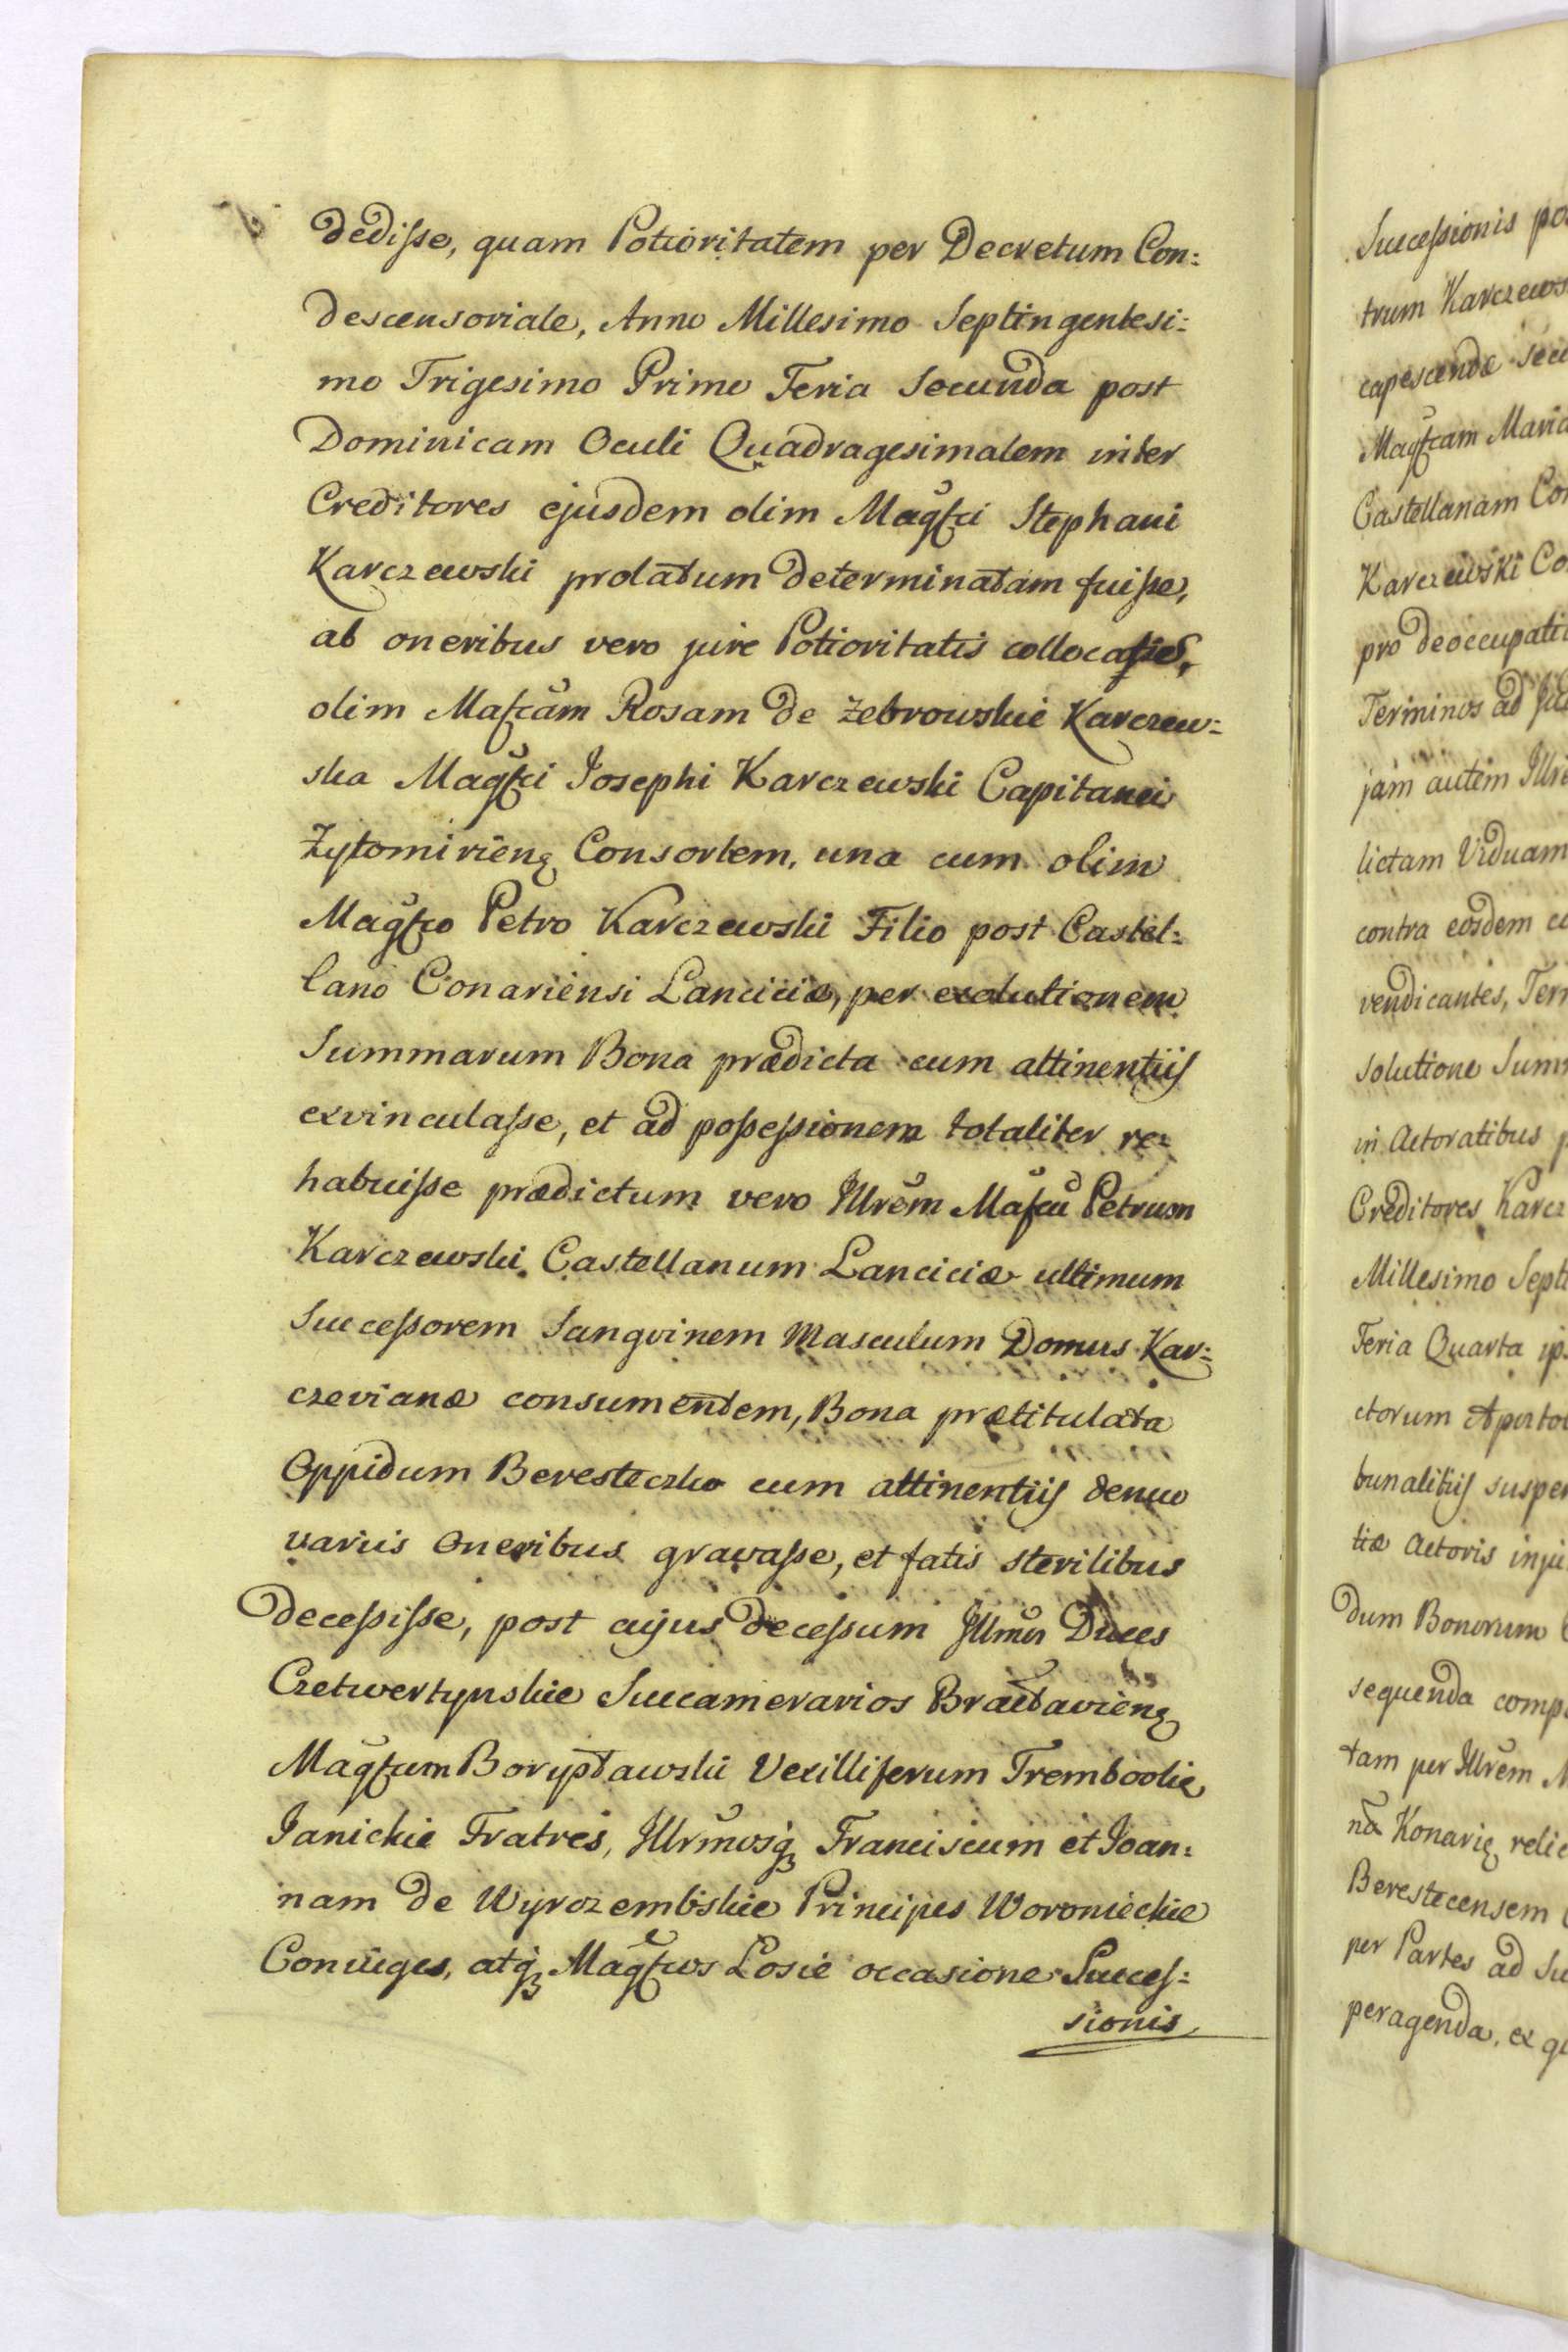 dedisse, quam Potioritatem per Decretum Con:
descensoriale, Anno Millesimo Septingentesi:
mo Trigesimo Primo Feria Secunda post
Dominicam Oculi Quadragesimalem inter
Creditores ejusdem olim Magfci Stephani
Karczewski prolatum determinatam fuisse,
ab oneribus vero jure Potioritatis
olim Mafcam Rosam de Zebrowskie Karczew:
ska Magfci Josephi Karczewski Capitanei
Zytomirieng Consortem, una cum olim
Magfco Petro Karczewski Filio post Castel:
lano Conariensi Lanciciæ, per exolutionem
Summarum Bona prædicta cum attinentiis
exvinculasse, et ad possessionem totaliter re:
habuisse prædictum vero Illrem Mafcu Petrum
Karczewski Castellanum Lanciciæ ultimum
Successorem Sangvinem Masculum Domus Kar:
czevianæ consumentem, Bona prætitulata
Oppidum Beresteczko cum attinentiis denuo
variis Oneribus gravasse, et fatis sterilibus
decessisse, post cujus decessum Illmos Duces
Czetwertynskie Succamerarios Bractavieng
Magfcum Vexilliferum Trembowlie
Janickie Fratres, Illrmosq Franciscum et Joan:
nam de Wyrozembskie Principes Woronieckie
Conjuges, atq Magfcos Losie occasione Succes:
sionis
Successionis
trum Karczews
capescendæ
Magfcam Maria
Castellanam
Karczewski
pro deoccupati
Terminos ad
jam autem
lictam Viduam
contra eosdem
vendicantes,
solutione
in Actoratibus
Creditores
Millesimo
Feria Quarta
ctorum
bunalitiis
tiæ Actoris
dum Bonorum
sequenda
tam per Illrem
relic
Berestecensem
per Partes ad
peragenda, ex